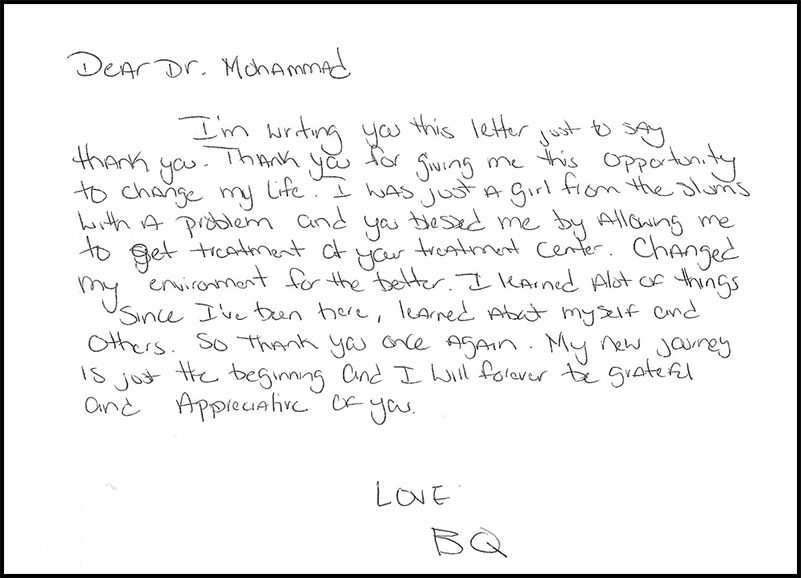 Dear Dr. Mohammad
I'm writing you this letter just to say
thank you. Thank you for giving me this opportunity
to change my life. I was just a girl from the slums
with a problem and you blessed me by allowing me
to get treatment at your treatment center. Changed
my environment for the better. I learned alot of things
since I've been here, learned about myself and
others. So thank you once again. My new journey
is just the beginning and I will forever be grateful
and appreciative of you.
Love
BQ